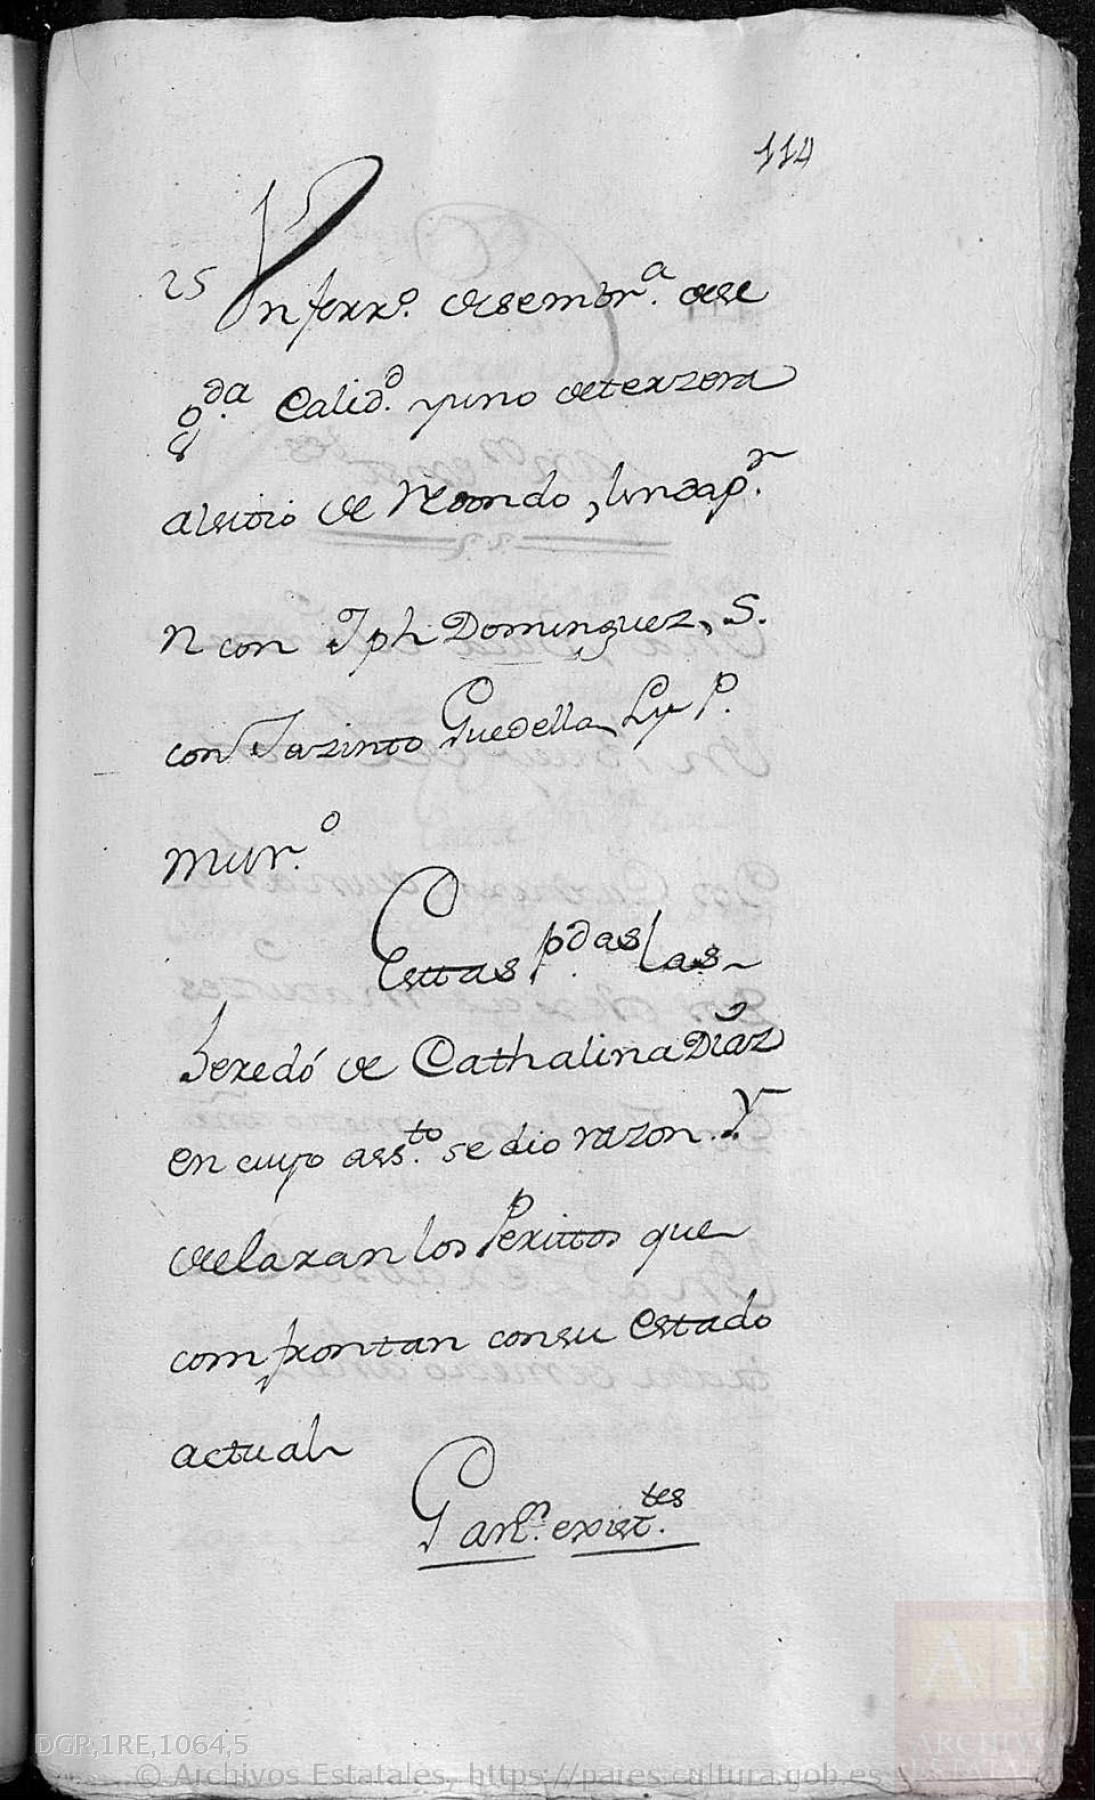 114
25 Un ferr.o desembr.a dese
g.da Calid.d yuno deterzera
alsitio de Redondo, linda p.r
N con Jph Dominguez, S.
con Jazinto Guedella, L y P.
mur.o
Esttas p.das las
heredó de Cathalina Díaz
en cuyo ass.to se dio razon. Y
declaran los Perittos que
comfrontan consu estado
actual
Gan.n exist.tes
DGR,1RE,1064,5
© Archivos Estatales, https://pares.cultura.gob.es